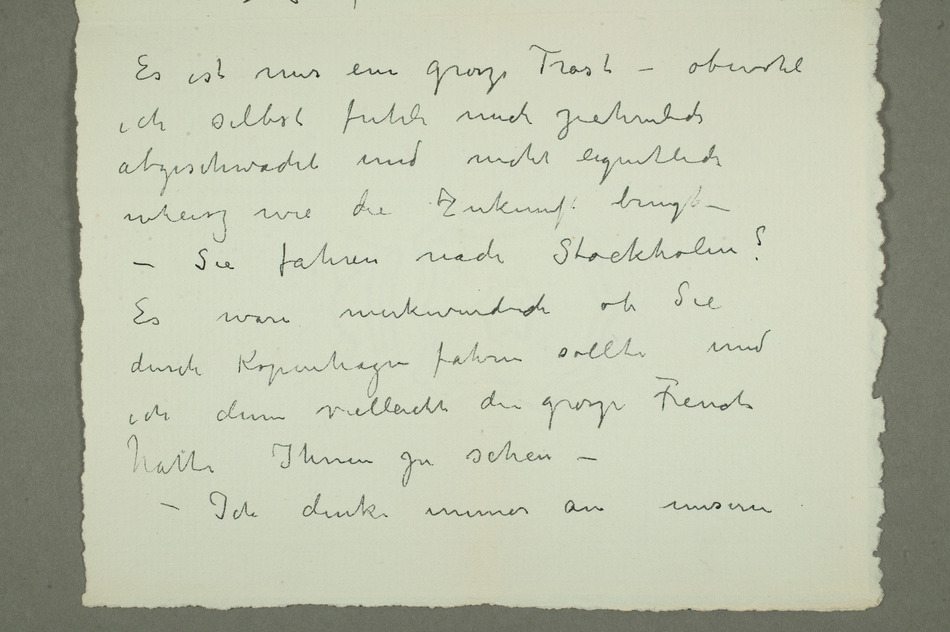 Es ist mir ein grosze Trost – obwohl
ich selbst fuhle mich ziehmlich
abgeschwacht und nicht eigentlich
wheisz wie die Zukunft bringt –
– Sie fahren nach Stockholm?
Es ware merkwurdich ob Sie
durch Kopenhagen fahren sollte und
ich denn vielleicht die grosze Freude
hatte Ihnen zu sehen –
– Ich denke immer an unseren